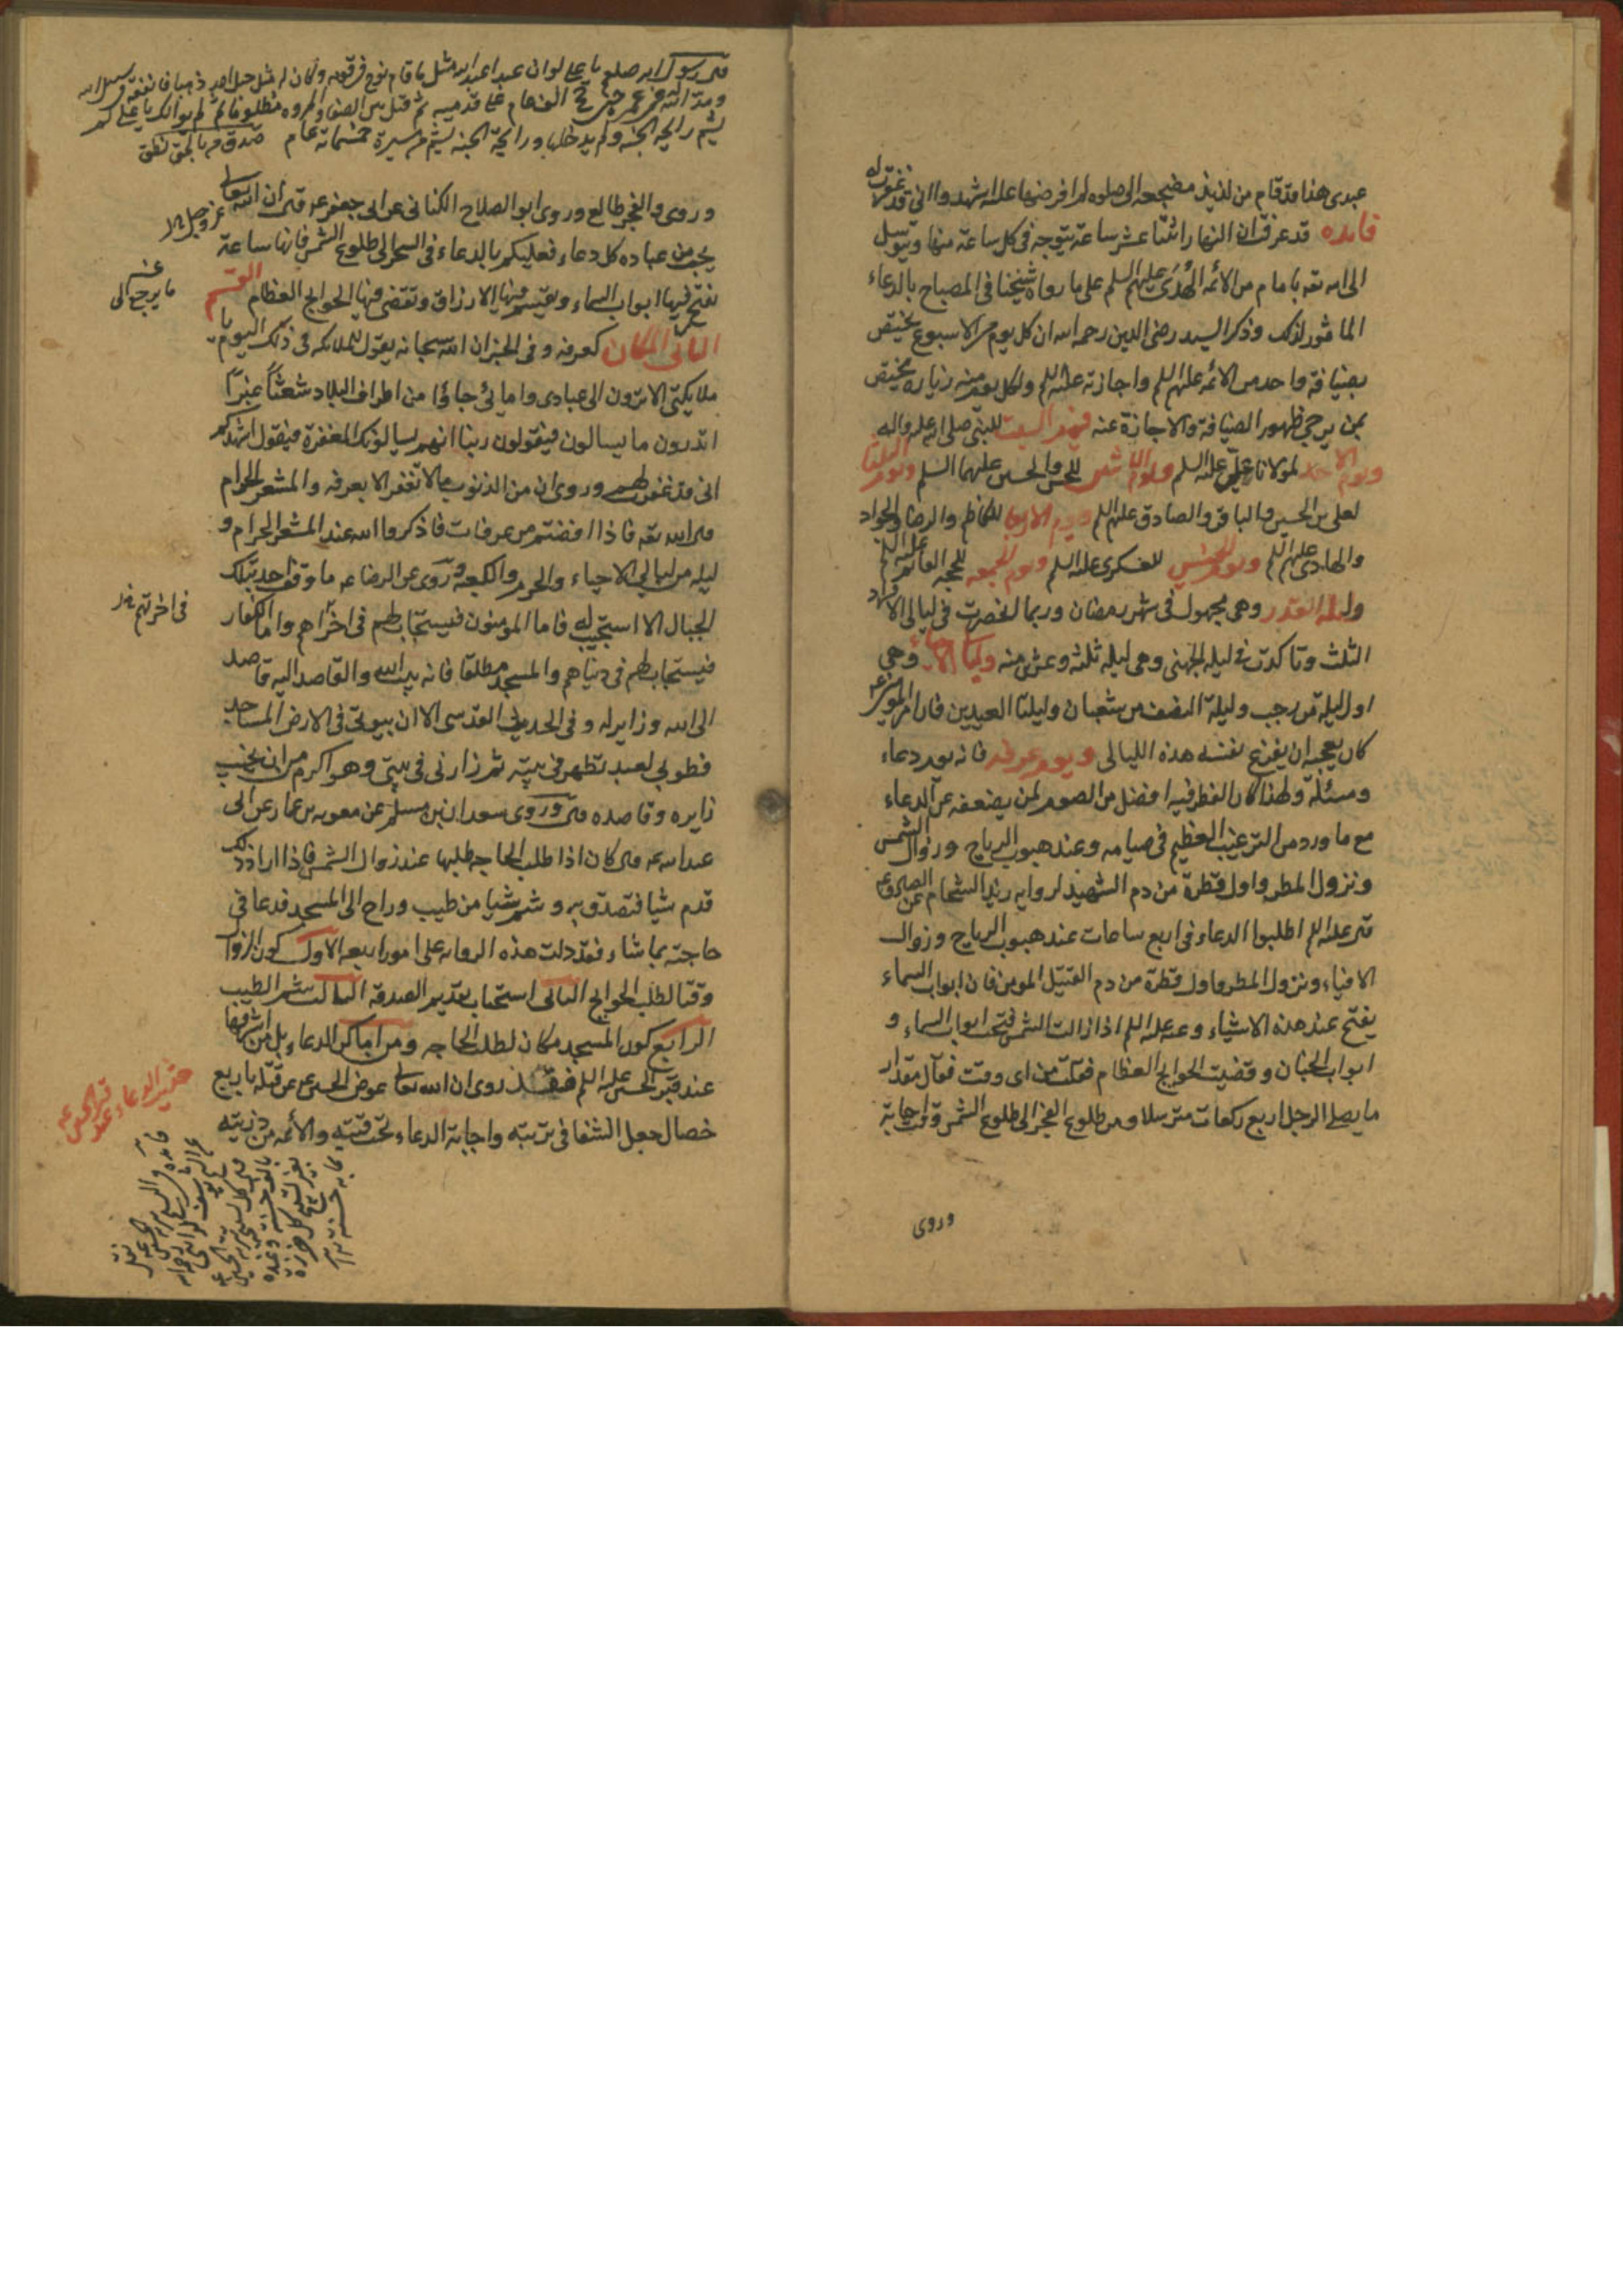 عبدى هذا قد قام من لذيذ مضجعه الى صلوة لم افرضها عليه اشهدوا انى قد غفرت له
فايده قد عرفت ان النهار اثنتا عشر ساعة يتوجه فى كل ساعة منها ويتوسل
الى الله تعه بامام من الائمه الهُدى عليهم السلم على ما رواه شيخنا فى المصباح بالدعاء
الماثور لذلك وذكر السيد رضى الدين رحمه الله ان كل يوم من الاسبوع يختص
بضيافة واحد من الائمه عليهم السلم واجازته عليه السلم ولكل يوم منه زياره يختص
بمن يرجى ظهور الضيافة والاجازة عنه فيوم السبت للنبى صلى الله عليه واله
ويوم الاحد لمولانا على عليه السلم ويوم الاثنين للحسن والحسين عليهما السلم ويوم الثلثا
لعلى بن الحسين والباقر والصادق عليهم السلم ويوم الاربعا للكاظم والرضا والجواد
والهادى عليهم السلم ويوم الخميس للعسكرى عليه السلم ويوم الجمعه للحجه القائم عليه السلم
وليله القدر وهى مجهول فى شهر رمضان وربما انحصرت فى ليالى الافراد
الثلث وتاكدت فى ليله الجهنى وهى ليله ثلثه وعشرين منه وليالى الاحياء وهى
اول ليلة من رجب وليلة النصف من شعبان وليلتا العيدين فان امير المومنين ع
كان يعجبه ان يفرغ نفسه هذه الليالى ويوم عرفه فانه يوم دعاء
ومسئلة ولهذا كان الفطر فيه افضل من الصوم لمن يضعفه عن الدعاء
مع ما ورد من الترغيب العظيم فى صيامه وعند هبوب الرياح وزوال الشمس
ونزول المطر واول قطرة من دم الشهيد لروايه زيد الشحام عن الصادق ع
قال عليه السلم اطلبوا الدعاء فى اربع ساعات عند هبوب الرياح وزوال
الافياء ونزول المطر واول قطرة من دم القتيل المومن فان ابواب السماء
يفتح عند هذه الاشياء وعنه عليه السلم اذا زالت الشمس فتحت ابواب السماء و
ابواب الجنان وقضيت الحوايج العظام فقلت من اى وقت فقال مقدار
ما يصلى الرجل اربع ركعات مترسلا ومن طلوع الفجر الى طلوع الشمس وقت اجابة
وروى
قال رسول الله صلعم يا على لو ان عبدا عبد الله مثل ما قام نوح فى قومه وكان له مثل جبل احد ذهبا فانفقه فى سبيل الله
ومد الله فى عمره حتى حج الف عام على قدميه ثم قتل بين الصفا والمروه مظلوما ثم لم يوالك يا على لم
يشم رايحة الجنه ولم يدخلها ورايحة الجنه يشم من مسيرة خمسمائة عام
وروى والفجر طالع وروى ابو الصلاح الكنانى عن ابى جعفر ع قال ان الله تعالى
عز وجل
يحب من عباده كل دعاء فعليكم بالدعاء فى السحر الى طلوع الشمس فانها ساعة
تفتح فيها ابواب السماء وتقسم فيها الارزاق وتقضى فيها الحوايج العظام القسم
ما يرجع الى
الثانى المكان كعرفه وفى الخبر ان الله سبحانه يقول للملائكه فى ذلك اليوم يا
ملايكتى الا ترون الى عبادى وامائى جاؤا من اطراف البلاد شعثاً غبراً
اتدرون ما يسالون فيقولون ربنا انهم يسالونك المغفرة فيقول اشهدكم
انى قد غفرت لهم وروى ان من الذنوب ما لا تغفر الا بعرفه والمشعر الحرام
قال الله تعه فاذا افضتم من عرفات فاذكروا الله عند المشعر الحرام و
ليله من ليالى الاحياء والحرم والكعبه وروى عن الرضا ع ما وقف احد بتلك
الجبال الا استجيب له فاما المومنون فيستجاب لهم فى اخراهم واما الكفار
فى اخرتهم
فيستجاب لهم فى دنياهم والمسجد مطلقا فانه بيت الله والقاصد اليه قاصد
الى الله وزاير له وفى الحديث القدسى الا ان بيوتى فى الارض المساجد
فطوبى لعبد تطهر فى بيته ثم زارنى فى بيتى وهو اكرم من ان يخيب
زايره وقاصده وروى سعدان بن مسلم عن معويه بن عمار عن ابى
عبد الله ع قال كان اذا طلب الحاجه طلبها عند زوال الشمس فاذا اراد ذلك
قدم شيا فتصدق به وشم شيا من طيب وراح الى المسجد فدعا فى
حاجته بما شاء فقد دلت هذه الروايه على امور اربعه الاول كون الزوال
وقتا لطلب الحوايج الثانى استحباب تقديم الصدقه الثالث شم الطيب
الرابع كون المسجد مكان لطلب الحاجه ومن اماكن الدعاء بل من اشرفها
عند قبر الحسين عليه السلم فقد روى ان الله تعالى عوض الحسين ع من قتله باربع
خصال جعل الشفا فى تربته واجابة الدعاء تحت قبته والائمه من ذريته
الدعاء عند قبر الحسين ع